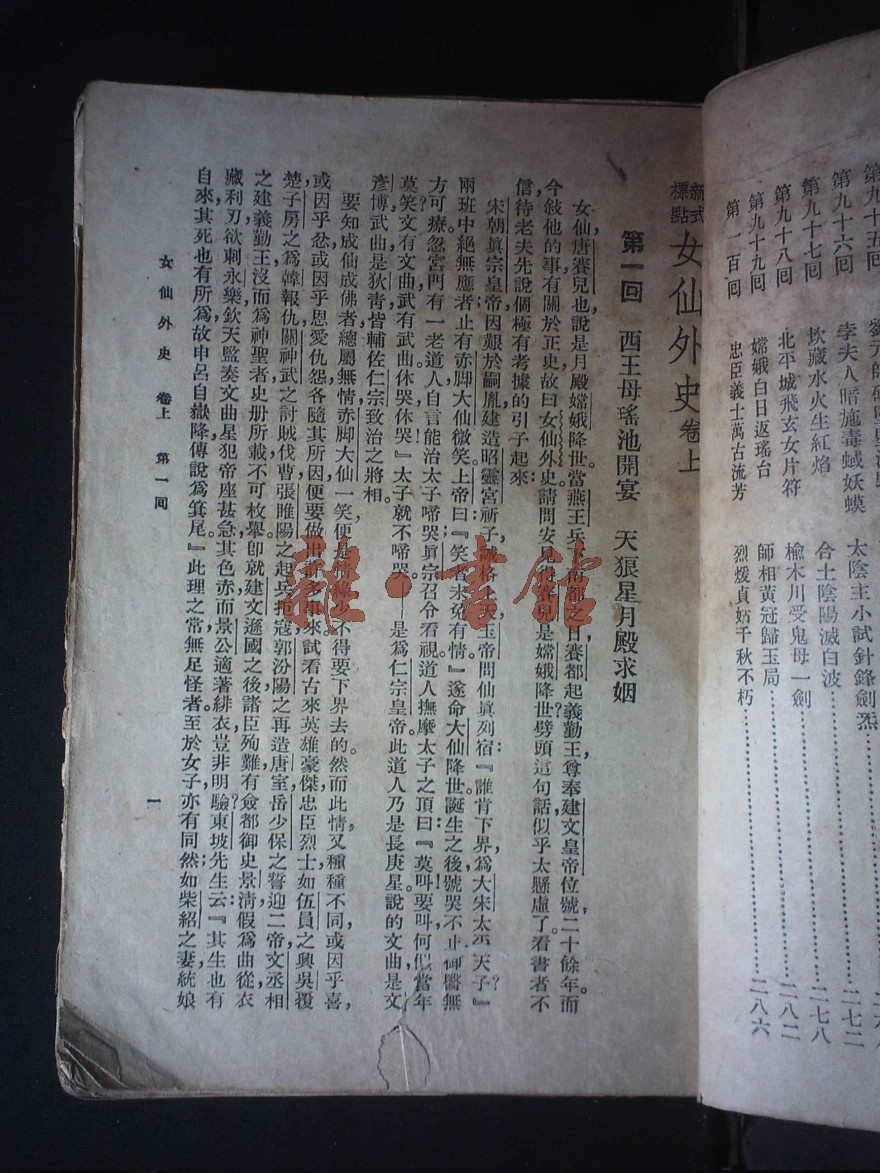 第九十五回
第九十六回 李夫人暗施毒蜮妖蟆 太陰主小試針鋒劍炁 二七二
第九十七回 坎藏水火生紅焰 合土陰陽滅白波 二七八
第九十八回 北平城飛玄女片符 榆木川受鬼母一劍 二八二
第九十九回 嫦娥白日返瑤台 師相黃冠歸玉局
第一百回 忠臣義士萬古流芳 烈媛貞姑千秋不朽 二八六
新式標點 女仙外史 卷上
第一回 西王母瑤池開宴 天狼星月殿求姻
女仙,唐賽兒也,說是月殿嫦娥降世,當燕王兵下南都之日,賽都起義勤王,尊奉建文皇帝位號,二十餘年。而
今敍他的事,有關於正史,故曰女仙外史。請問安見得賽兒是嫦娥降世?劈頭這句話,似乎太懸虛了。看書者不
信,待老夫先說個極有考據的引子起來:
宋朝眞宗皇帝,因艱於嗣胤,建造昭靈宮祈子,誠格上天。玉帝問仙眞列宿:『誰肯下界,爲大宋太平天子?』
兩班中絕無應者。止有赤脚大仙微笑,上帝曰:『笑者未免有情。』遂命大仙降世。誕生之後,號哭不止,御醫無
方可療。忽宮門有一老道人,自言能治太子啼哭,眞宗召令看視,道人撫摩太子之頂曰:『莫叫,莫叫,何似當年
莫笑?文有文曲,武有武曲,休哭,休哭!』太子就不啼哭——是爲仁宗皇帝。此道人乃是長庚星,說的文曲是文
彥博,武曲是狄靑,皆輔佐仁宗致治之將相。
要知成仙成佛者,總屬無情,赤脚大仙一笑,便是情緣,少不得要下界去的。然而此情又種種不同,或因乎喜,
或因乎忿,或因乎恩愛仇怨,各隨其所因,便要做出許多事來。試看古來英雄豪傑,忠臣烈士,如伍員之興吳覆
楚,子房之爲韓報仇,關神武之討賊伐曹,張睢陽之起兵拒寇,郭汾陽之再造唐室,岳少保之誓迎二帝,文丞相
之建義勤王,沒而爲神聖者,史册所載,不可枚擧。卽就建文遜國之後,諸臣殉難,有僉都御史景淸,假爲曲從,衣
藏利刃,欲刺永樂,欽天監奏文曲星犯帝座甚急,其色赤,而景公適著緋衣,豈非明驗?東坡先生云:『其生也有
自來,其死也有所爲,故申呂自嶽降,傳說爲箕尾。』此理之常,無足怪者。至於女子亦有同然:如柴紹之妻,統娘
女仙外史 卷上 第一回
一
龍·書館